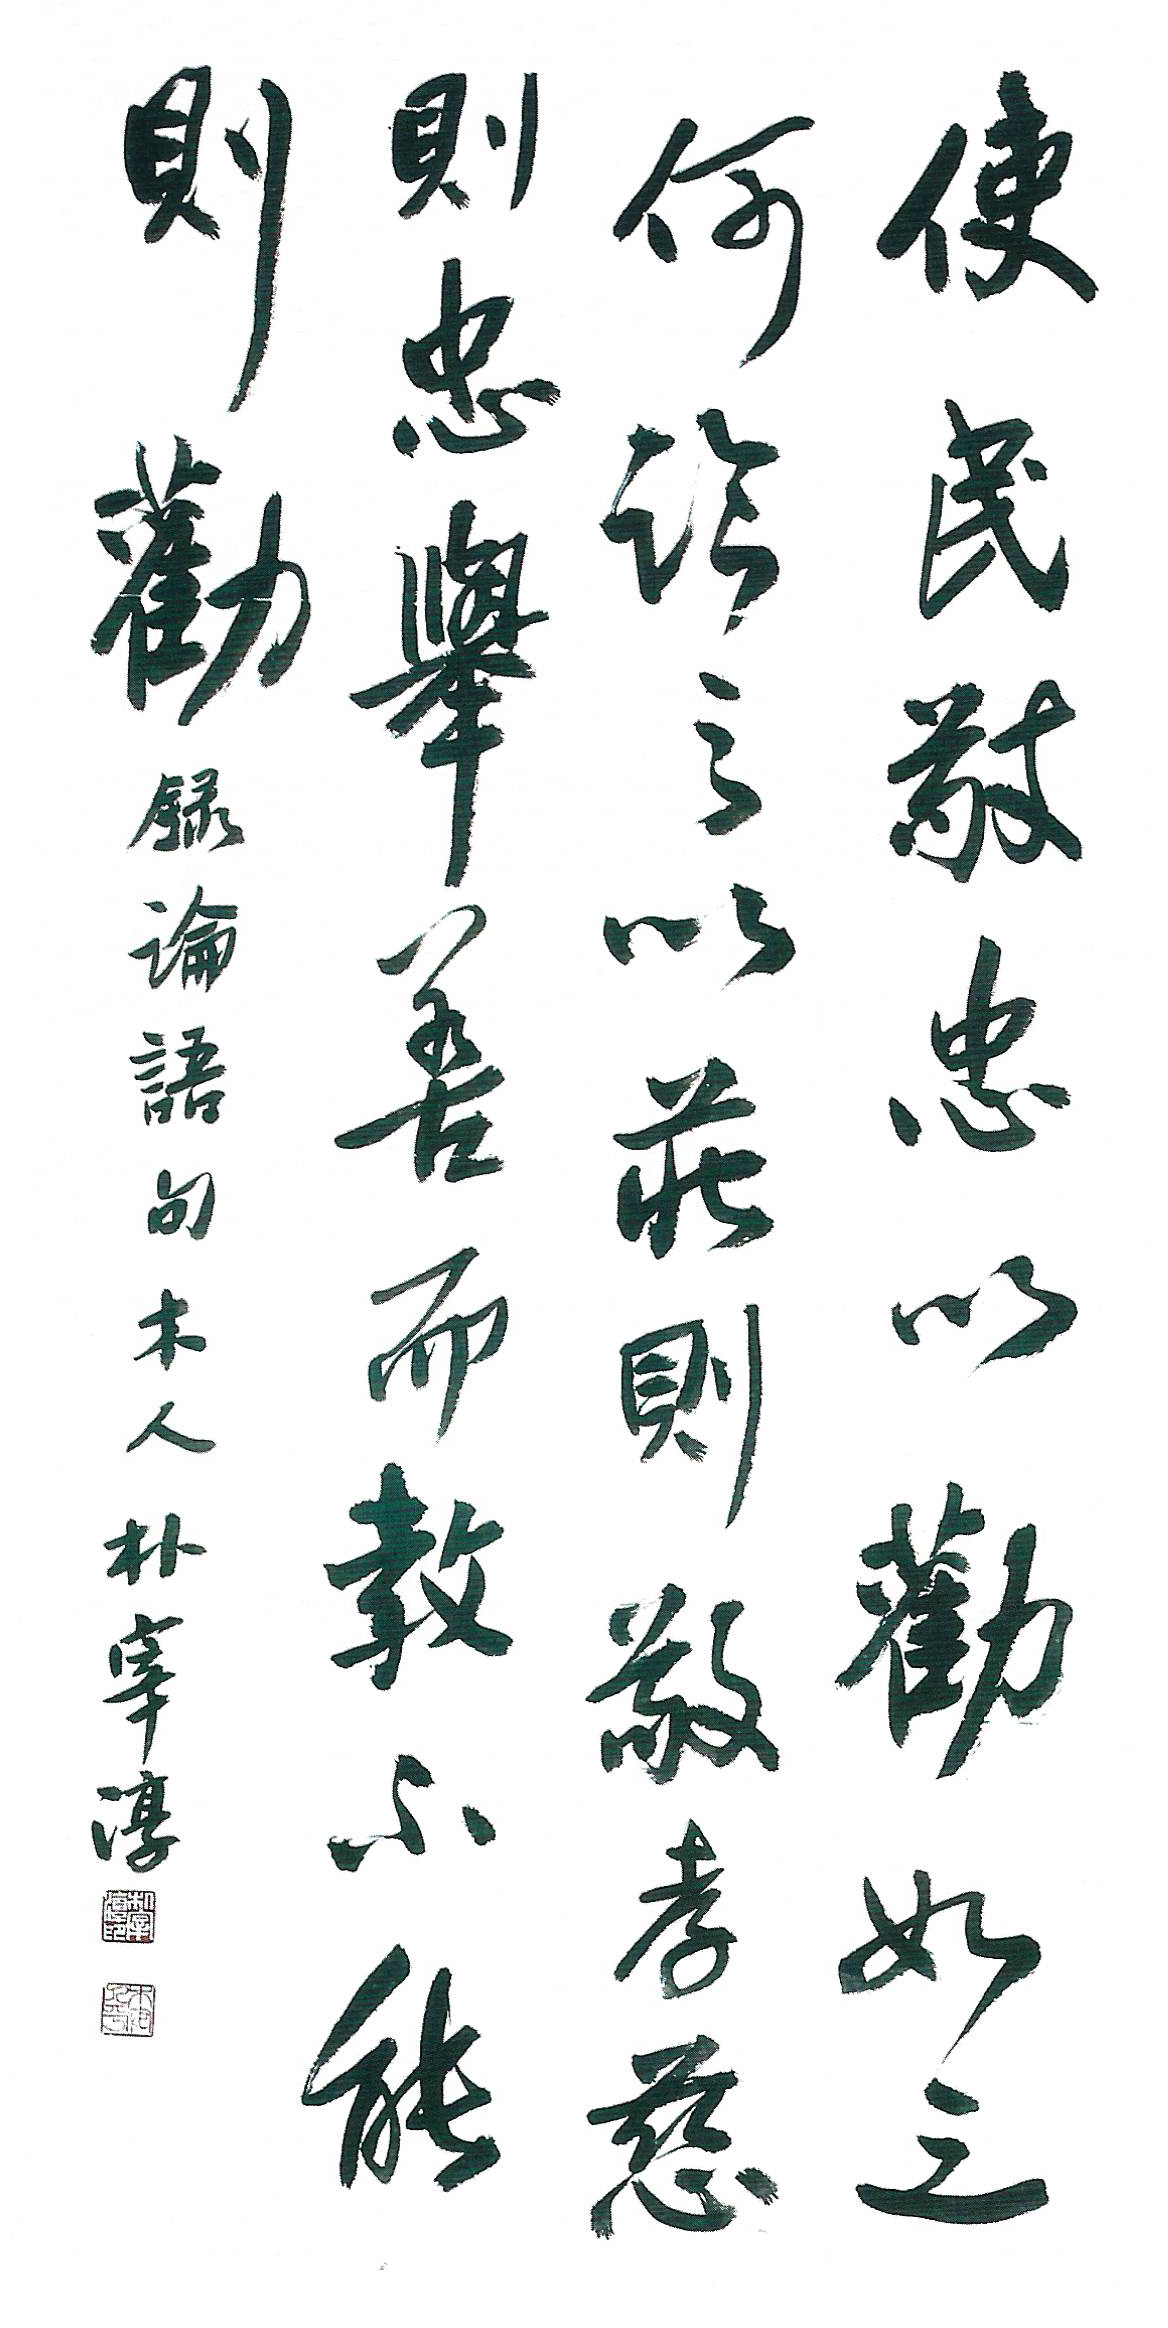 使民敬忠以勸如之
何臨之以莊則敬孝慈
則忠舉善而敎不能
則勸 錄論語句 木人 朴宰淳